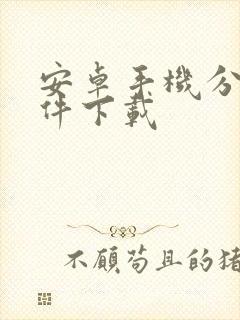 安卓手機分
件下載
不顧苟且的猪